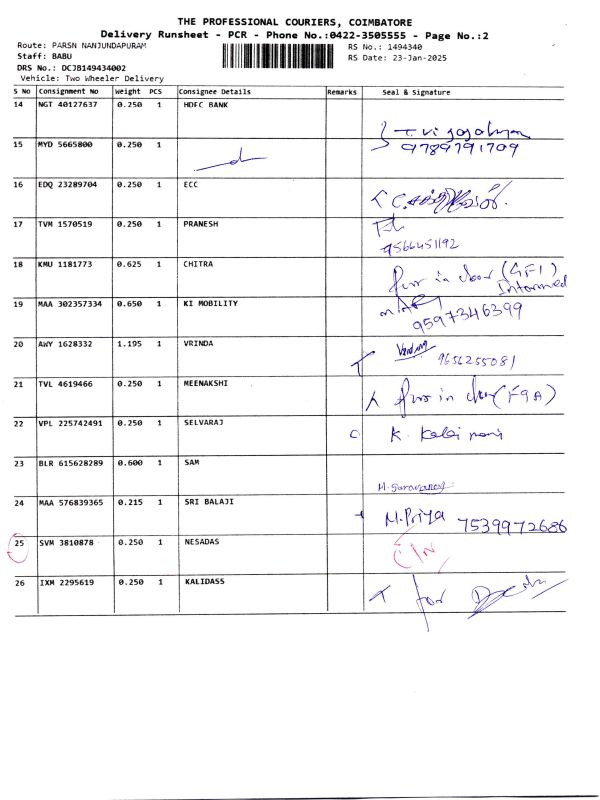 THE PROFESSIONAL COURIERS, COIMBATORE
Delivery Runsheet - PCR - Phone No.:0422-3505555 - Page No.:2
Route: PARSN NANJUNDAPURAM RS No.: 1494340
Staff: BABU RS Date: 23-Jan-2025
DRS No.: DCJB149434002
Vehicle: Two Wheeler Delivery
S No Consignment No Weight PCS Consignee Details Remarks Seal & Signature
14 NGT 40127637 0.250 1 HDFC BANK
15 MYD 5665800 0.250 1 9789791709
16 EDQ 23289704 0.250 1 ECC
17 TVM 1570519 0.250 1 PRANESH
9566451192
18 KMU 1181773 0.625 1 CHITRA in door (GF1)
Informed
19 MAA 302357334 0.650 1 KI MOBILITY 9597346399
20 AWY 1628332 1.195 1 VRINDA 9656255081
21 TVL 4619466 0.250 1 MEENAKSHI in door (F9A)
22 VPL 225742491 0.250 1 SELVARAJ K. Kalai mani
23 BLR 615628289 0.600 1 SAM
M. Saravanan
24 MAA 576839365 0.215 1 SRI BALAJI M. Priya 7539972686
25 SVM 3810878 0.250 1 NESADAS C/N
26 IXM 2295619 0.250 1 KALIDASS for